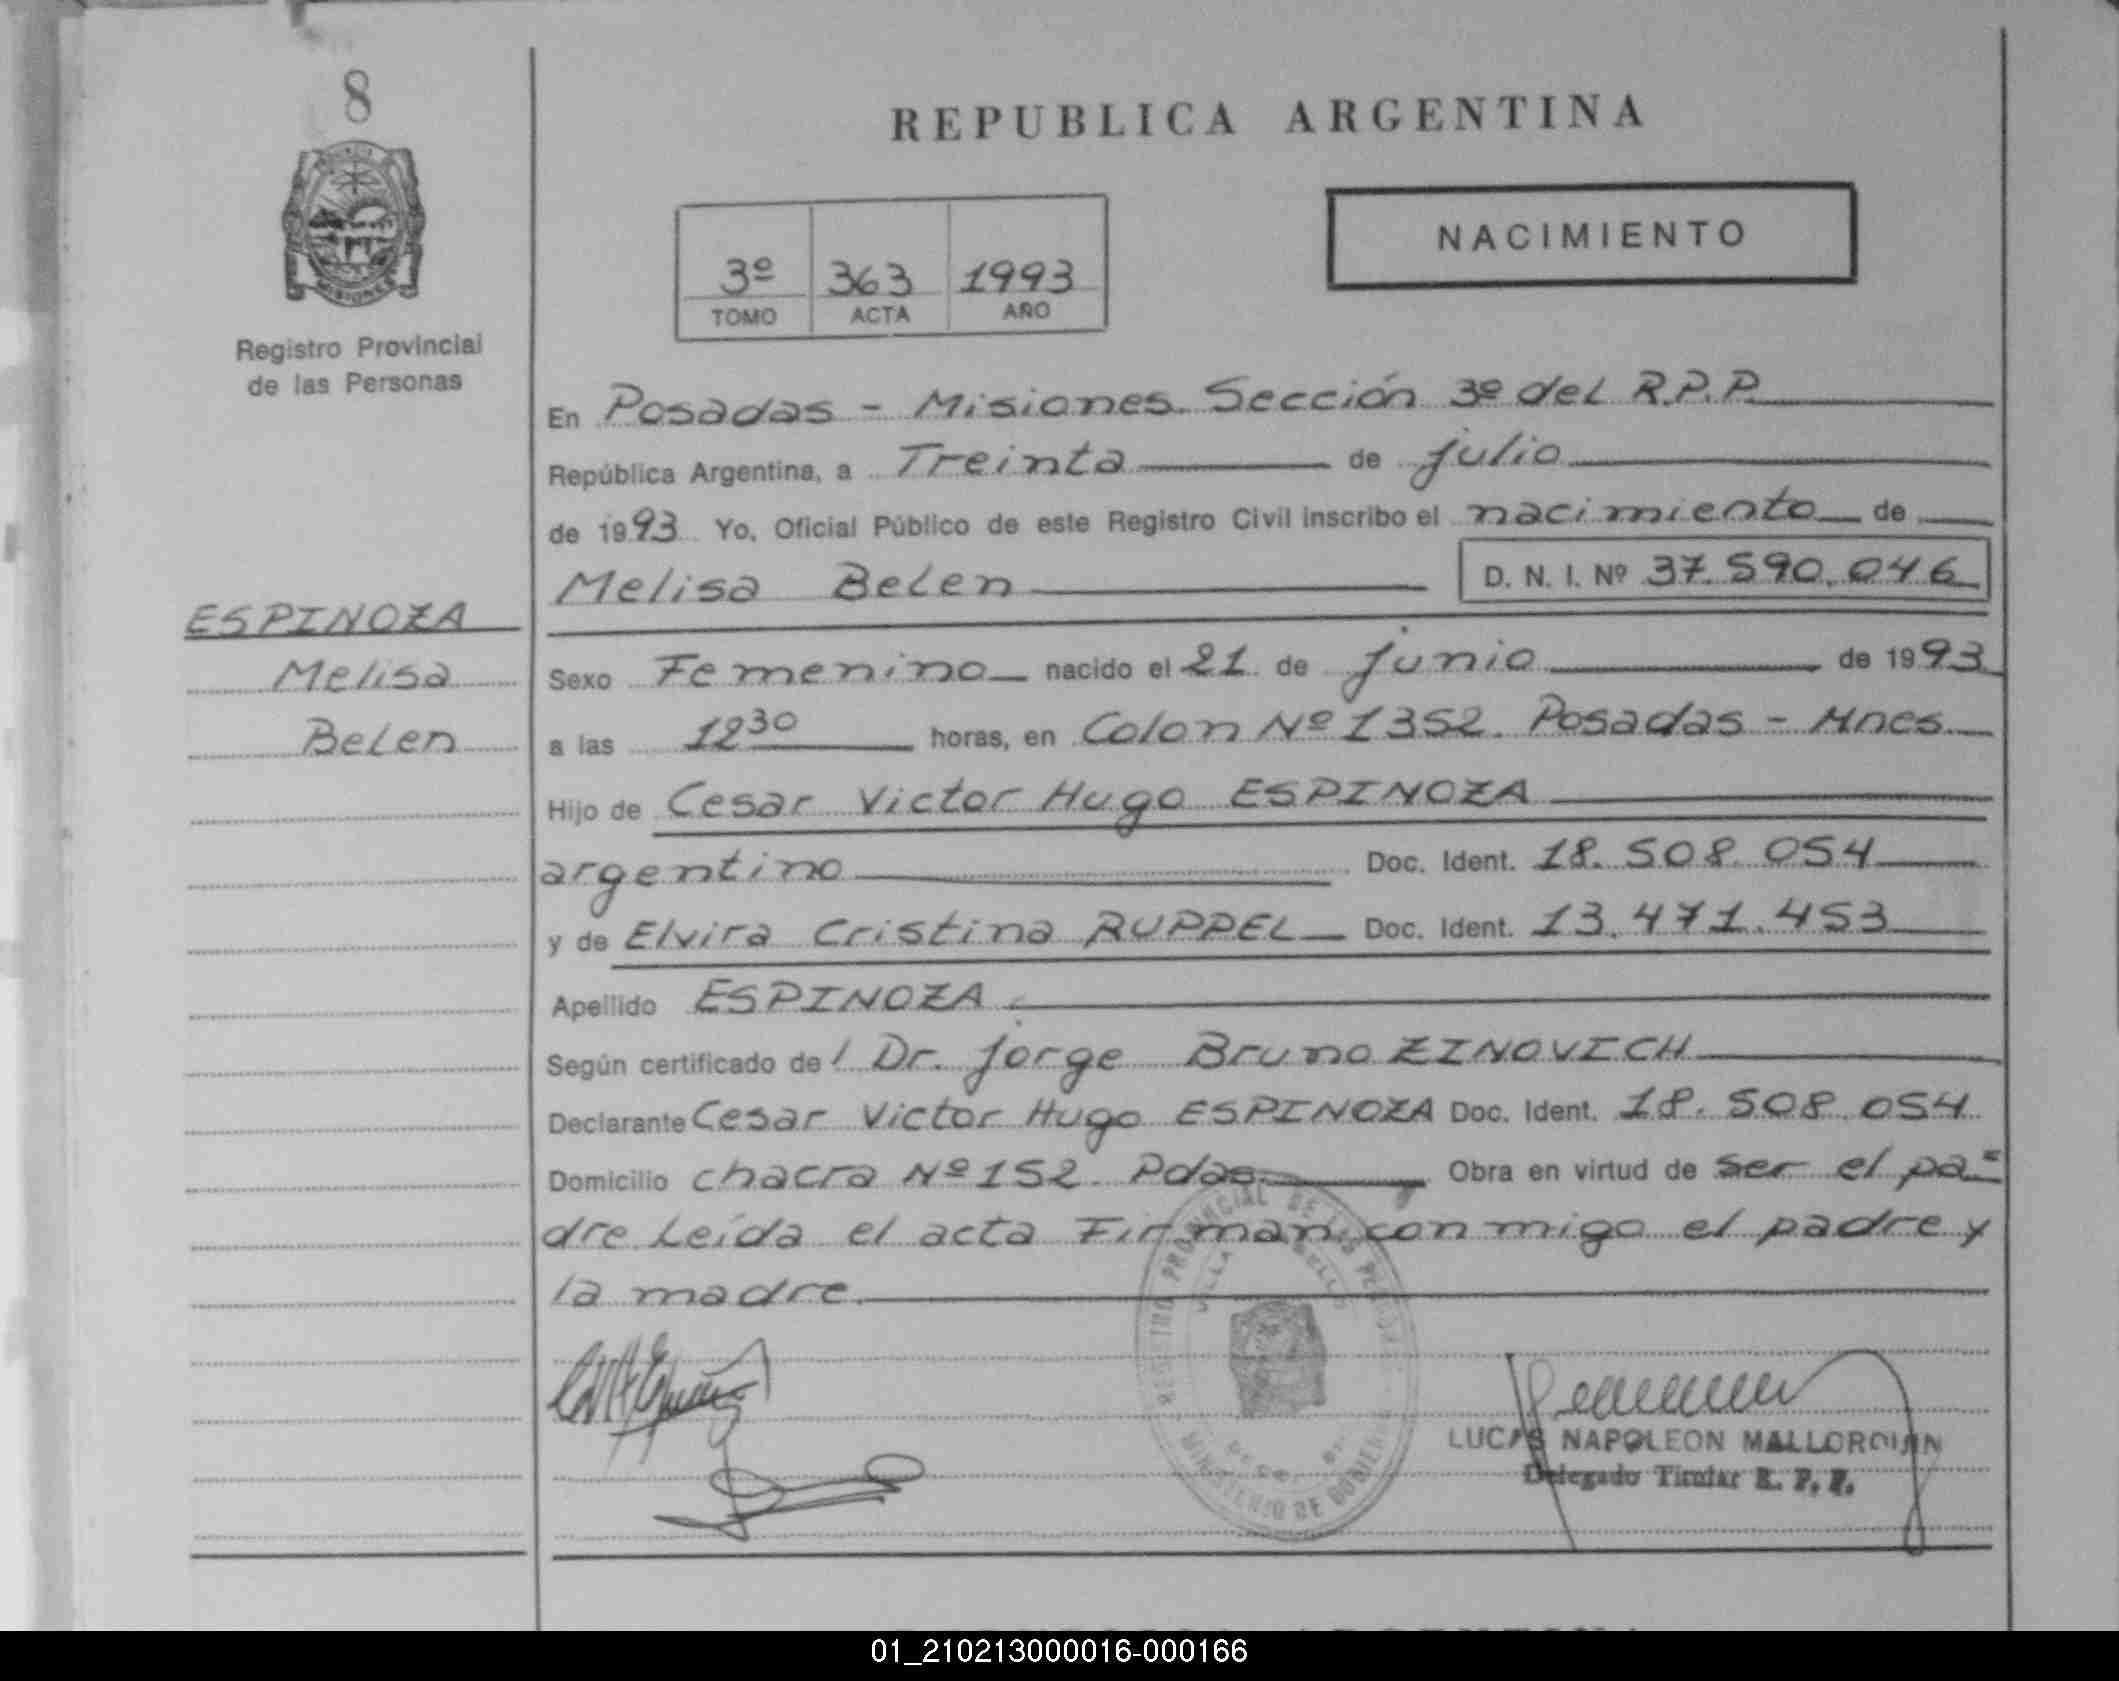 8
REPUBLICA ARGENTINA
NACIMIENTO
3º 363 1993
TOMO ACTA AÑO
MISIONES
Registro Provincial
de las Personas
En Posadas - Misiones. Sección 3º del R.P.P.
República Argentina, a Treinta de julio
de 1993 Yo, Oficial Público de este Registro Civil inscribo el nacimiento de
Melisa Belen D. N. I. Nº 37.590.046
ESPINOZA
Melisa
Belen
Sexo Femenino nacido el 21 de junio de 1993
a las 12 30 horas, en Colon Nº 1352. Posadas - Mnes.
Hijo de Cesar Victor Hugo ESPINOZA
argentino Doc. Ident. 18.508.054
y de Elvira Cristina RUPPEL Doc. Ident. 13.471.453
Apellido ESPINOZA
Según certificado de l Dr. Jorge Bruno ZINOVICH
Declarante Cesar Victor Hugo ESPINOZA Doc. Ident. 18.508.054
Domicilio chacra Nº 152. Pdas. Obra en virtud de ser el pa=
dre Leída el acta Firman conmigo el padre y
la madre.
REGISTRO PROVINCIAL DE LAS
VILLA
MINISTERIO DE GOBIERNO
LUCAS NAPOLEON
Delegado Titular R. P. P.
01_210213000016-000166